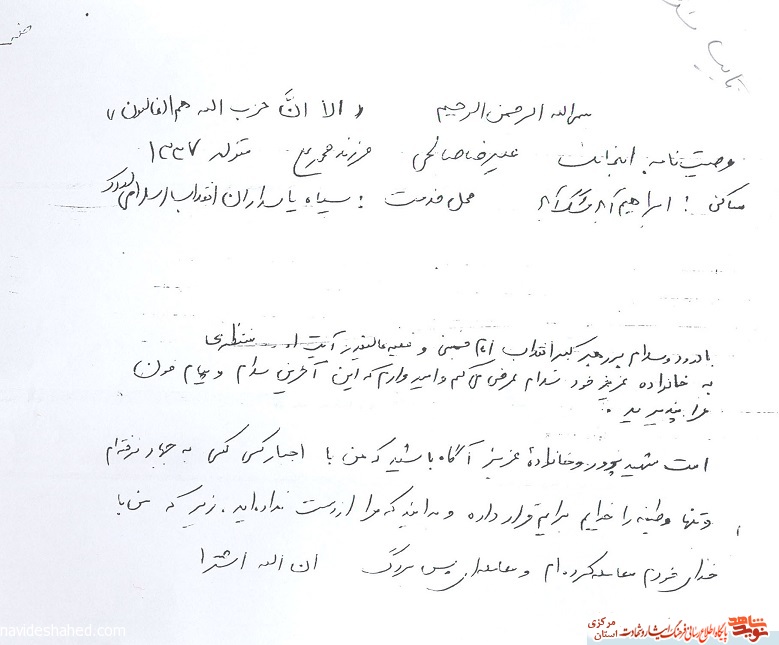 تایپ شد
بسم الله الرحمن الرحیم « الا انَّ حزب الله هم الغالبون »
وصیت نامه اینجانب علیرضا صالحی فرزند متولد ۱۳۳۷
ساکن : ابراهیم آباد محل خدمت : سپاه پاسداران انقلاب اسلامی
با درود و سلام بر رهبر کبیر انقلاب امام خمینی و فقیه عالیقدر آیت الله منتظری
به خانواده عزیز خود سلام عرض می کنم و امیدوارم که این آخرین سلام و پیام خون
مرا بپذیرید .
امت شهید پرور و خانوادهٔ عزیز آگاه باشید که من با اجبار کسی به جهاد نرفته ام
و تنها وظیفه را خدایم برایم قرار داده و بدانید که مرا از دست نداده اید . زیرا که من با
خدای خودم معامله کرده ام و معامله ای بس بزرگ ان الله اشترا
navideshahed.com
نوید شاهد پایگاه اطلاع رسانی فرهنگ ایثار و شهادت استان مرکزی